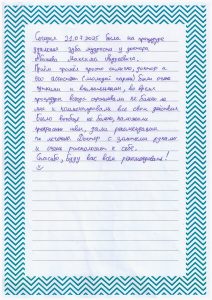 Сегодня 21.07.2025 была на процедуре
удаления зуба мудрости у доктора
Максима
Приём прошёл просто отлично, доктор и
его ассистент (молодой парень) были очень
чуткими и внимательными, во время
процедуры всегда спрашивали не больно ли
мне и комментировали все свои действия.
Было вообще не больно, наложили
швы, дали рекомендации
по лечению. Доктор с золотыми руками
и очень располагает к себе.
Спасибо, буду вас всем рекомендовать!